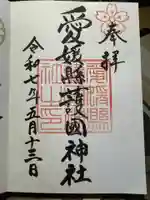 奉拝
愛媛縣護國神社
令和七年五月十三日